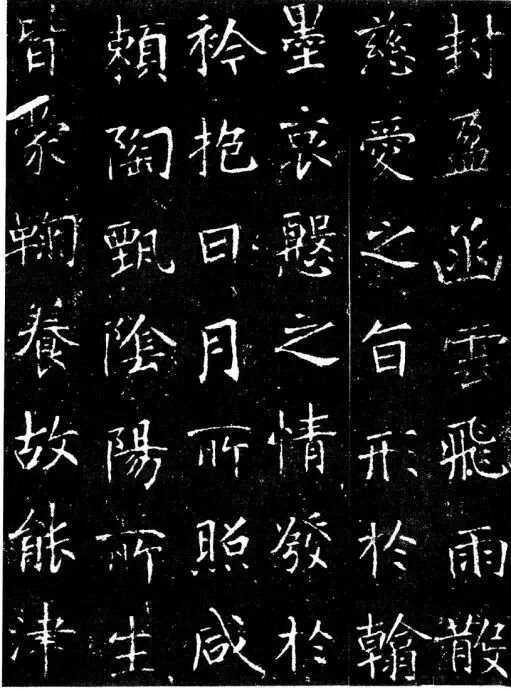 封盈函雲飛雨散
慈愛之旨形於翰
墨哀懇之情發於
衿抱日月所照咸
賴陶甄陰陽所生
皆蒙鞠養故能津